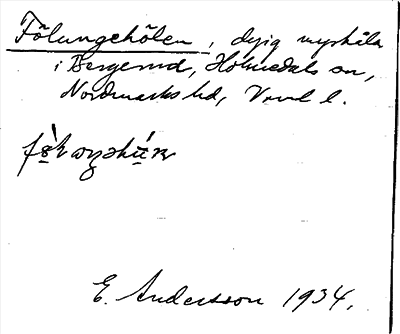 Fölungehölen, dyig myrhåla
i Bergerud, Holmedals sn,
Nordmarks hd, Vrml l.
E. Andersson 1934.